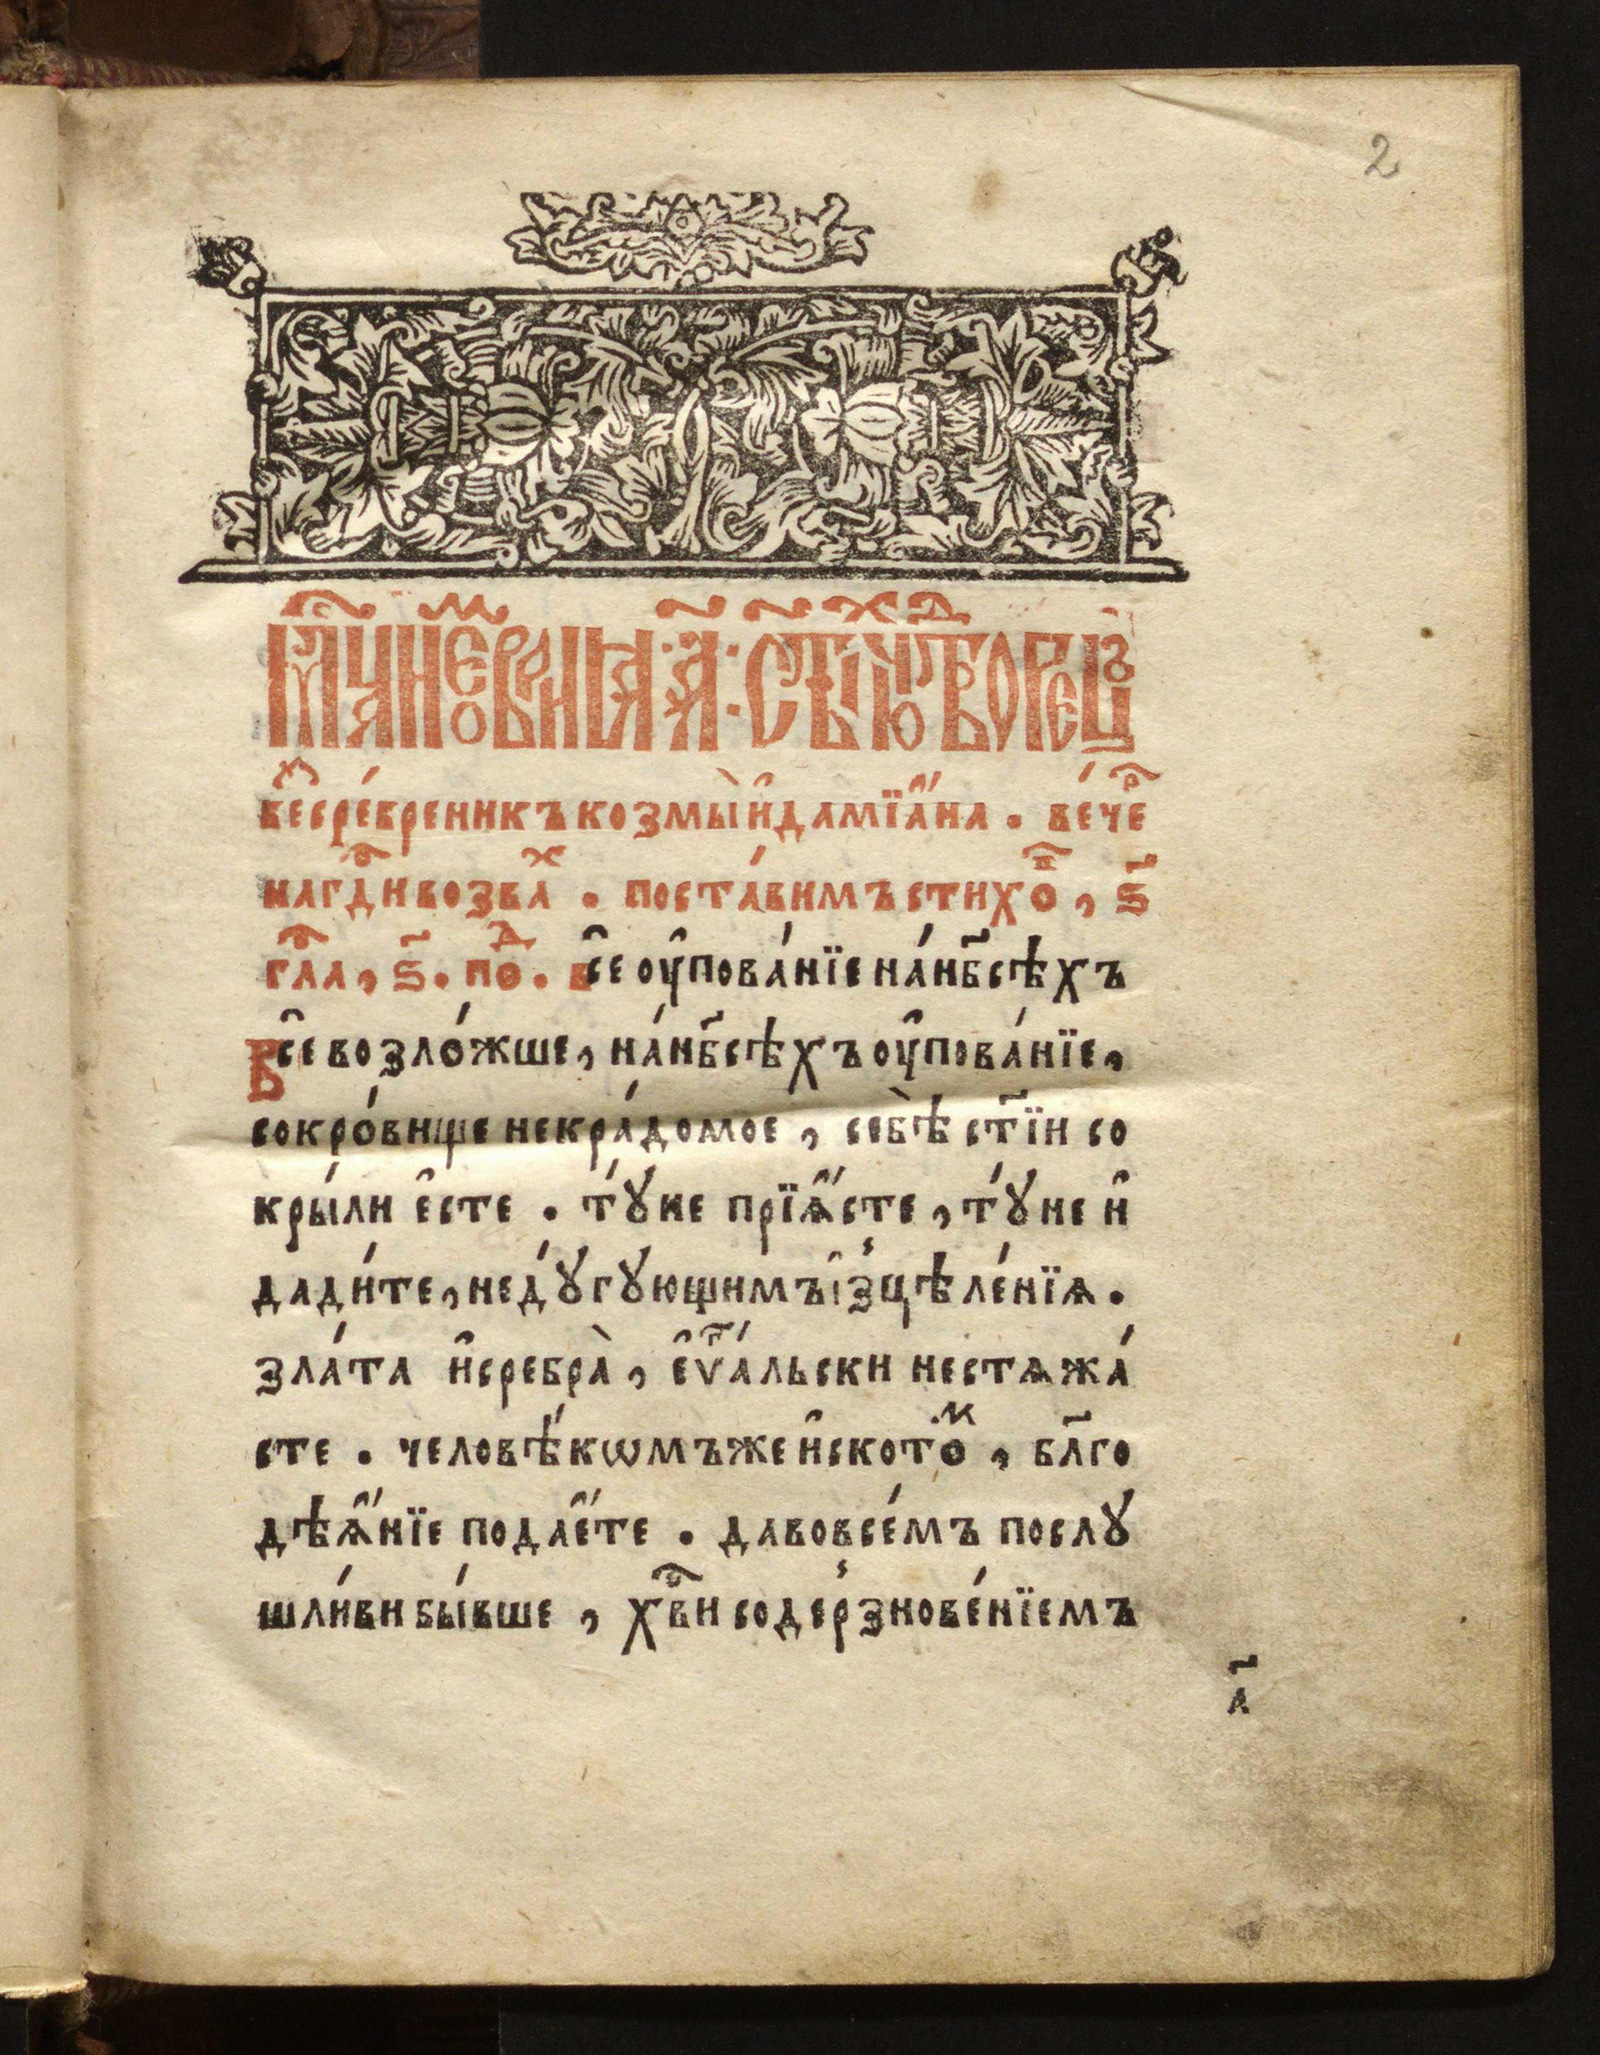 2
Мⷭ҇ца ноемврⷨїа · а҃ · ст҃ыⷯ чюдⷣотворец
беⷥсре́бреникъ козмы̀ и҆ дамїа҆́на . ве́чеⷬ҇
на гдⷭ҇и возваⷯ . поста́вимъ стихоⷡ҇ , ѕ҃
глаⷭ҇ , ѕ҃ . поⷣ . все ᲂу҆пова́нїе на́ нб҃сѣхъ
Все возло́жше , на́ нб҃сѣхъ ᲂу҆пова́нїе ,
сокро́вище некра́домое , себѣ̀ ст҃їи со
кры́ли є҆сте . тꙋ́не прїѧ҆́сте , тꙋ́не и҆
дади́те , недꙋ́гꙋющимъ и҆зцѣле́нїѧ .
зла́та и҆ сребра̀ , є҆ѵⷢ҇а́льски нестѧжа́
сте . человѣ́кѡмъ же и҆ ското́ⷨ , бл҃го
дѣѧ҆́нїе подае҆́те . да вовсе́мъ послꙋ
шли́ви бы́вше , хрⷭ҇ви содерзнове́нїемъ
а҃